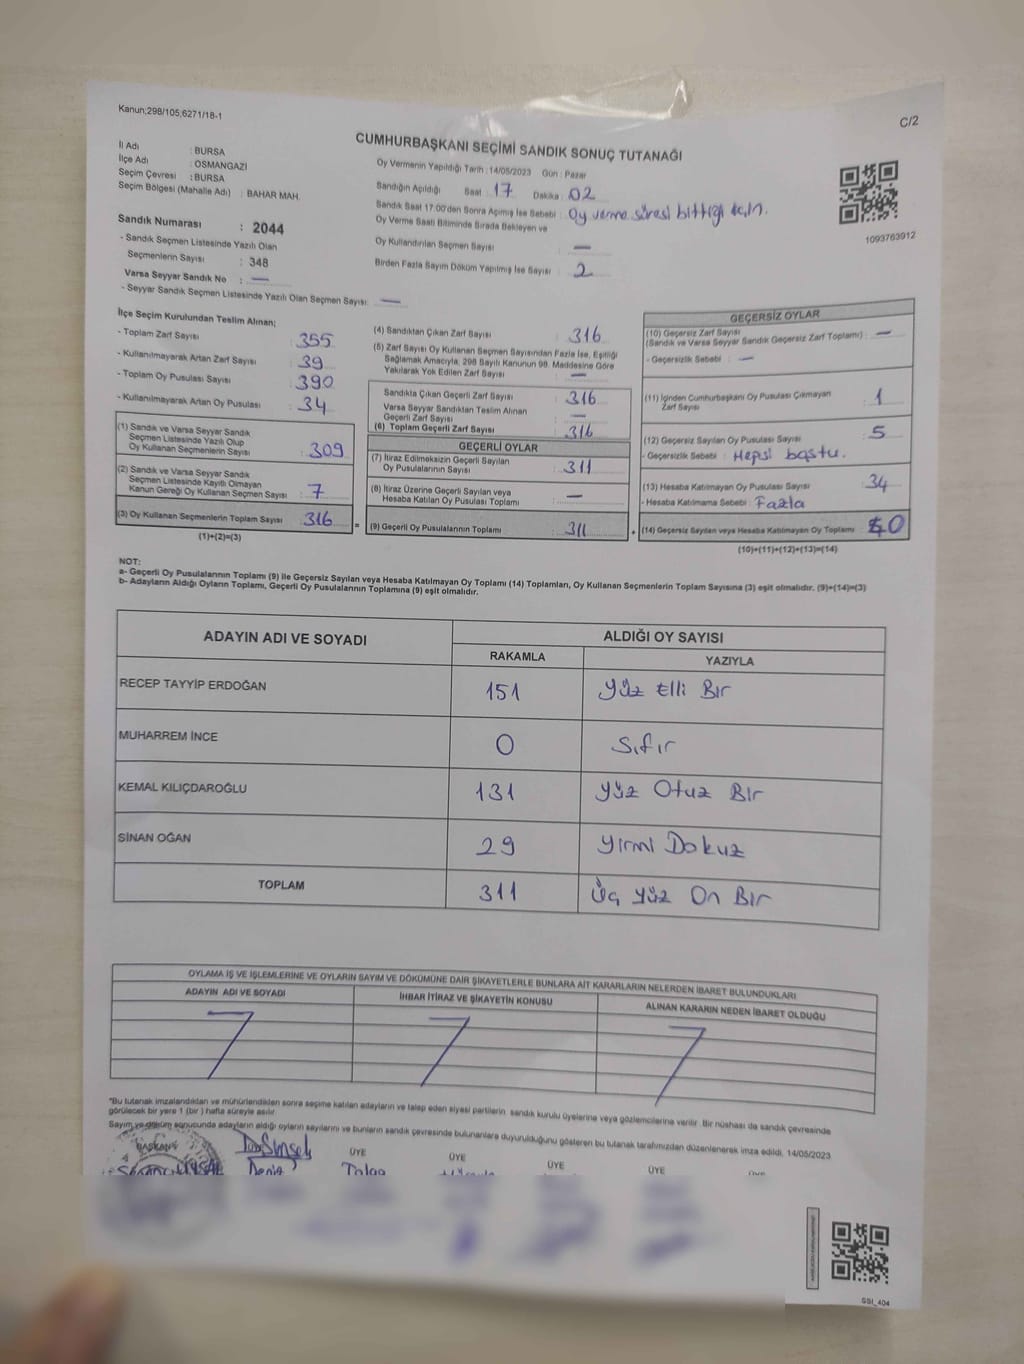 Kanun;298/105,6271/18-1
C/2
CUMHURBAŞKANI SEÇİMİ SANDIK SONUÇ TUTANAĞI
İl Adı : BURSA
İlçe Adı : OSMANGAZİ
Seçim Çevresi : BURSA
Seçim Bölgesi (Mahalle Adı) : BAHAR MAH.
Oy Vermenin Yapıldığı Tarih : 14/05/2023 Gün : Pazar
Sandığın Açıldığı Saat : 17 Dakika : 02
Sandık Saat 17:00'den Sonra Açılmış İse Sebebi : Oy verme süresi bittiği için.
Oy Verme Saati Bitiminde Sırada Bekleyen ve
Oy Kullandırılan Seçmen Sayısı : —
Birden Fazla Sayım Döküm Yapılmış İse Sayısı : 2
1093763912
Sandık Numarası : 2044
- Sandık Seçmen Listesinde Yazılı Olan
Seçmenlerin Sayısı : 348
Varsa Seyyar Sandık No : —
- Seyyar Sandık Seçmen Listesinde Yazılı Olan Seçmen Sayısı: —
İlçe Seçim Kurulundan Teslim Alınan;
- Toplam Zarf Sayısı : 355
- Kullanılmayarak Artan Zarf Sayısı : 39
- Toplam Oy Pusulası Sayısı : 390
- Kullanılmayarak Artan Oy Pusulası : 34
(1) Sandık ve Varsa Seyyar Sandık
Seçmen Listesinde Yazılı Olup
Oy Kullanan Seçmenlerin Sayısı : 309
(2) Sandık ve Varsa Seyyar Sandık
Seçmen Listesinde Kayıtlı Olmayan
Kanun Gereği Oy Kullanan Seçmen Sayısı : 7
(3) Oy Kullanan Seçmenlerin Toplam Sayısı : 316
(1)+(2)=(3)
(4) Sandıktan Çıkan Zarf Sayısı : 316
(5) Zarf Sayısı Oy Kullanan Seçmen Sayısından Fazla İse, Eşitliği
Sağlamak Amacıyla, 298 Sayılı Kanunun 98. Maddesine Göre
Yakılarak Yok Edilen Zarf Sayısı : —
Sandıkta Çıkan Geçerli Zarf Sayısı : 316
Varsa Seyyar Sandıktan Teslim Alınan
Geçerli Zarf Sayısı : —
(6) Toplam Geçerli Zarf Sayısı : 316
GEÇERLİ OYLAR
(7) İtiraz Edilmeksizin Geçerli Sayılan
Oy Pusulalarının Sayısı : 311
(8) İtiraz Üzerine Geçerli Sayılan veya
Hesaba Katılan Oy Pusulası Toplamı : —
= (9) Geçerli Oy Pusulalarının Toplamı : 311
GEÇERSİZ OYLAR
(10) Geçersiz Zarf Sayısı
(Sandık ve Varsa Seyyar Sandık Geçersiz Zarf Toplamı) : —
- Geçersizlik Sebebi : —
(11) İçinden Cumhurbaşkanı Oy Pusulası Çıkmayan
Zarf Sayısı : 1
(12) Geçersiz Sayılan Oy Pusulası Sayısı : 5
- Geçersizlik Sebebi : Hepsi bastu.
(13) Hesaba Katılmayan Oy Pusulası Sayısı : 34
- Hesaba Katılmama Sebebi : Fazla
+ (14) Geçersiz Sayılan veya Hesaba Katılmayan Oy Toplamı : 40
(10)+(11)+(12)+(13)=(14)
NOT:
a- Geçerli Oy Pusulalarının Toplamı (9) ile Geçersiz Sayılan veya Hesaba Katılmayan Oy Toplamı (14) Toplamları, Oy Kullanan Seçmenlerin Toplam Sayısına (3) eşit olmalıdır. (9)+(14)=(3)
b- Adayların Aldığı Oyların Toplamı, Geçerli Oy Pusulalarının Toplamına (9) eşit olmalıdır.
ADAYIN ADI VE SOYADI ALDIĞI OY SAYISI
RAKAMLA YAZIYLA
RECEP TAYYİP ERDOĞAN 151 Yüz Elli Bir
MUHARREM İNCE 0 Sıfır
KEMAL KILIÇDAROĞLU 131 Yüz Otuz Bir
SİNAN OĞAN 29 Yirmi Dokuz
TOPLAM 311 Üç Yüz On Bir
OYLAMA İŞ VE İŞLEMLERİNE VE OYLARIN SAYIM VE DÖKÜMÜNE DAİR ŞİKAYETLERLE BUNLARA AİT KARARLARIN NELERDEN İBARET BULUNDUKLARI
ADAYIN ADI VE SOYADI İHBAR İTİRAZ VE ŞİKAYETİN KONUSU ALINAN KARARIN NEDEN İBARET OLDUĞU
*Bu tutanak imzalandıktan ve mühürlendikten sonra seçime katılan adayların ve talep eden siyasi partilerin sandık kurulu üyelerine veya gözlemcilerine verilir. Bir nüshası da sandık çevresinde
görülecek bir yere 1 (bir) hafta süreyle asılır.
Sayım ve döküm sonucunda adayların aldığı oyların sayılarını ve bunların sandık çevresinde bulunanlara duyurulduğunu gösteren bu tutanak tarafımızdan düzenlenerek imza edildi. 14/05/2023
BAŞKAN ÜYE ÜYE ÜYE ÜYE
Deniz
SSI_404